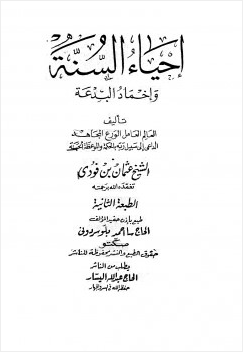 إحياء السنّة
وإخماد البدعة
تأليف
العالم العامل الورع المجاهد
الداعي إلى سبيل ربه بالحكمة والموعظة الحسنة
الشيخ عثمان بن فودي
تغمده الله برحمته
الطبعة الثانية
طبع بإذن حفيد المؤلف
الحاج
صكتو
حقوق الطبع والنشر محفوظة للناشر
يطلب من الناشر
الحاج عبد الله اليسار
حفظه الله